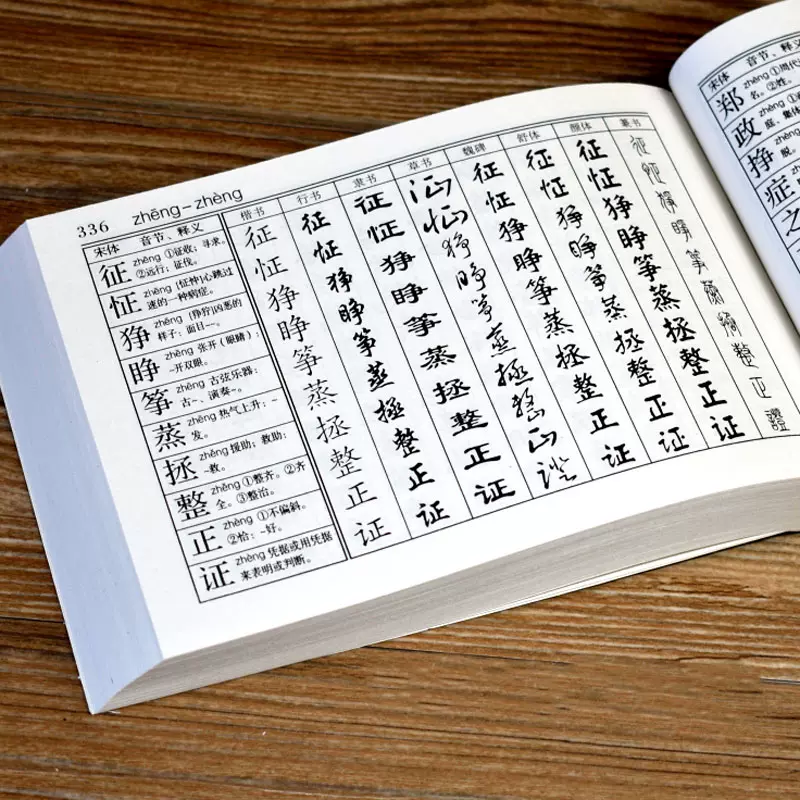 336 zhēng-zhèng
宋体 音节、释义 楷书 行书 隶书 草书 魏碑 舒体 颜体 篆书
征 zhēng ①征收; 寻求。 ②远行; 征伐。 征 征 征 征 征 征 征 征
怔 zhēng [怔忡]心跳过速的一种病症。 怔 怔 怔 怔 怔 怔 怔 怔
狰 zhēng [狰狞]凶恶的样子: 面目~~。 狰 狰 狰 狰 狰 狰 狰 狰
睁 zhēng 张开(眼睛): ~开双眼。 睁 睁 睁 睁 睁 睁 睁 睁
筝 zhēng 古弦乐器: 古~、演奏~。 筝 筝 筝 筝 筝 筝 筝 筝
蒸 zhēng 热气上升; ~发。 蒸 蒸 蒸 蒸 蒸 蒸 蒸 蒸
拯 zhěng 援助; 救助: ~救。 拯 拯 拯 拯 拯 拯 拯 拯
整 zhěng ①整齐。②齐全。③整治。 整 整 整 整 整 整 整 整
正 zhèng ①不偏斜。 ②恰: ~好。 正 正 正 正 正 正 正 正
证 zhèng 凭据或用凭据来表明或判断。 证 证 证 证 证 证 证 證
宋体 音节、释义
郑 zhèng ①周代
名。②姓。
政 zhèng
庭、集体
挣 zhèng
脱。
症 zhèng
之